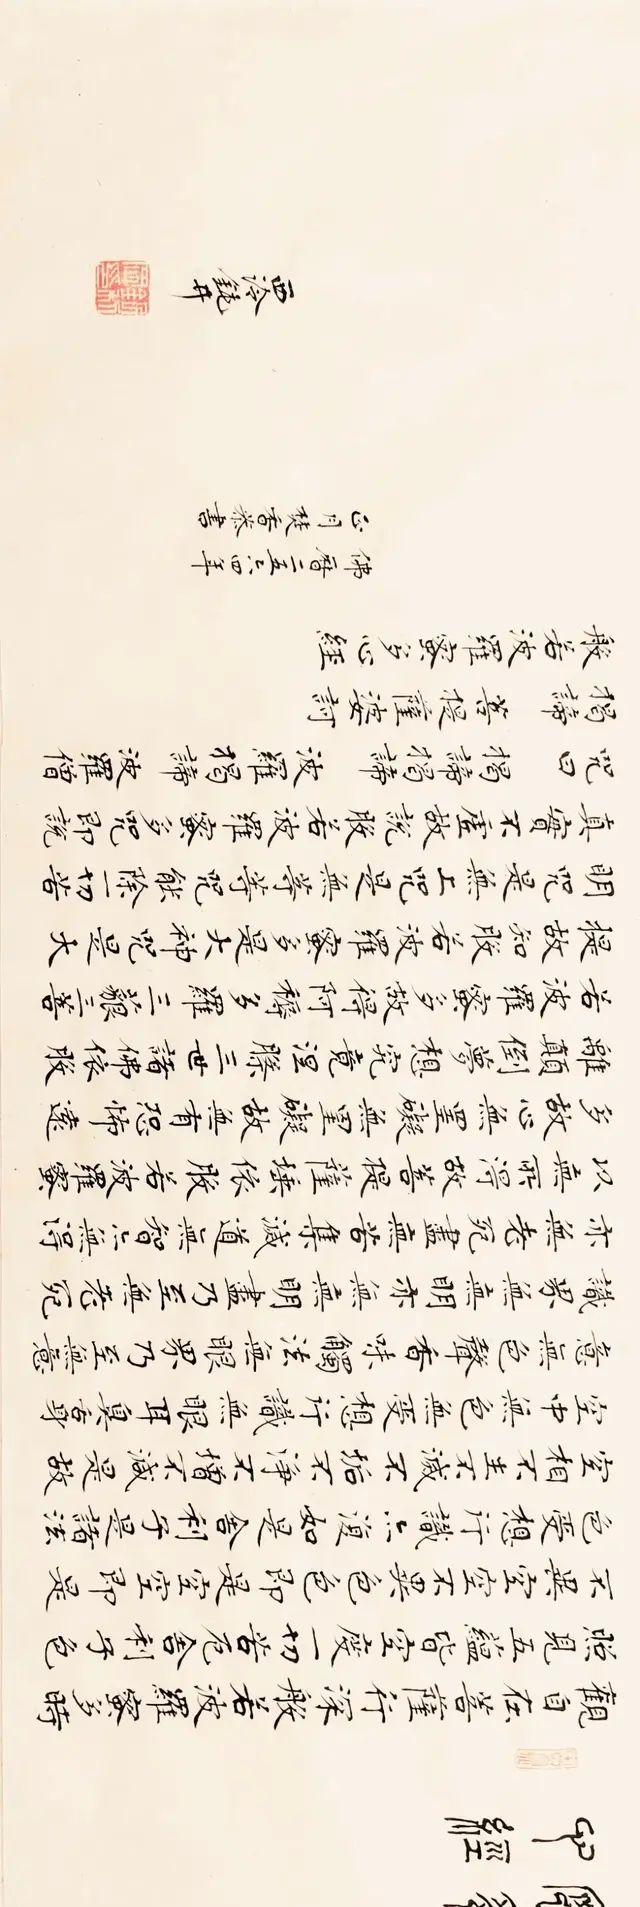 心經
觀自在菩薩行深般若波羅蜜多時
照見五蘊皆空度一切苦厄舍利子色
不異空空不異色色即是空空即是
色受想行識亦復如是舍利子是諸法
空相不生不滅不垢不淨不增不減是故
空中無色無受想行識無眼耳鼻舌身
意無色聲香味觸法無眼界乃至無意
識界無無明亦無無明盡乃至無老死
亦無老死盡無苦集滅道無智亦無得
以無所得故菩提薩埵依般若波羅蜜
多故心無罣礙無罣礙故無有恐怖遠
離顛倒夢想究竟涅槃三世諸佛依般
若波羅蜜多故得阿耨多羅三藐三菩
提故知般若波羅蜜多是大神咒是大
明咒是無上咒是無等等咒能除一切苦
真實不虛故說般若波羅蜜多咒即說
咒曰 揭諦揭諦 波羅揭諦 波羅僧
揭諦 菩提薩婆訶
般若波羅蜜多心經
佛曆二五六四年
正月焚香恭書
西泠井